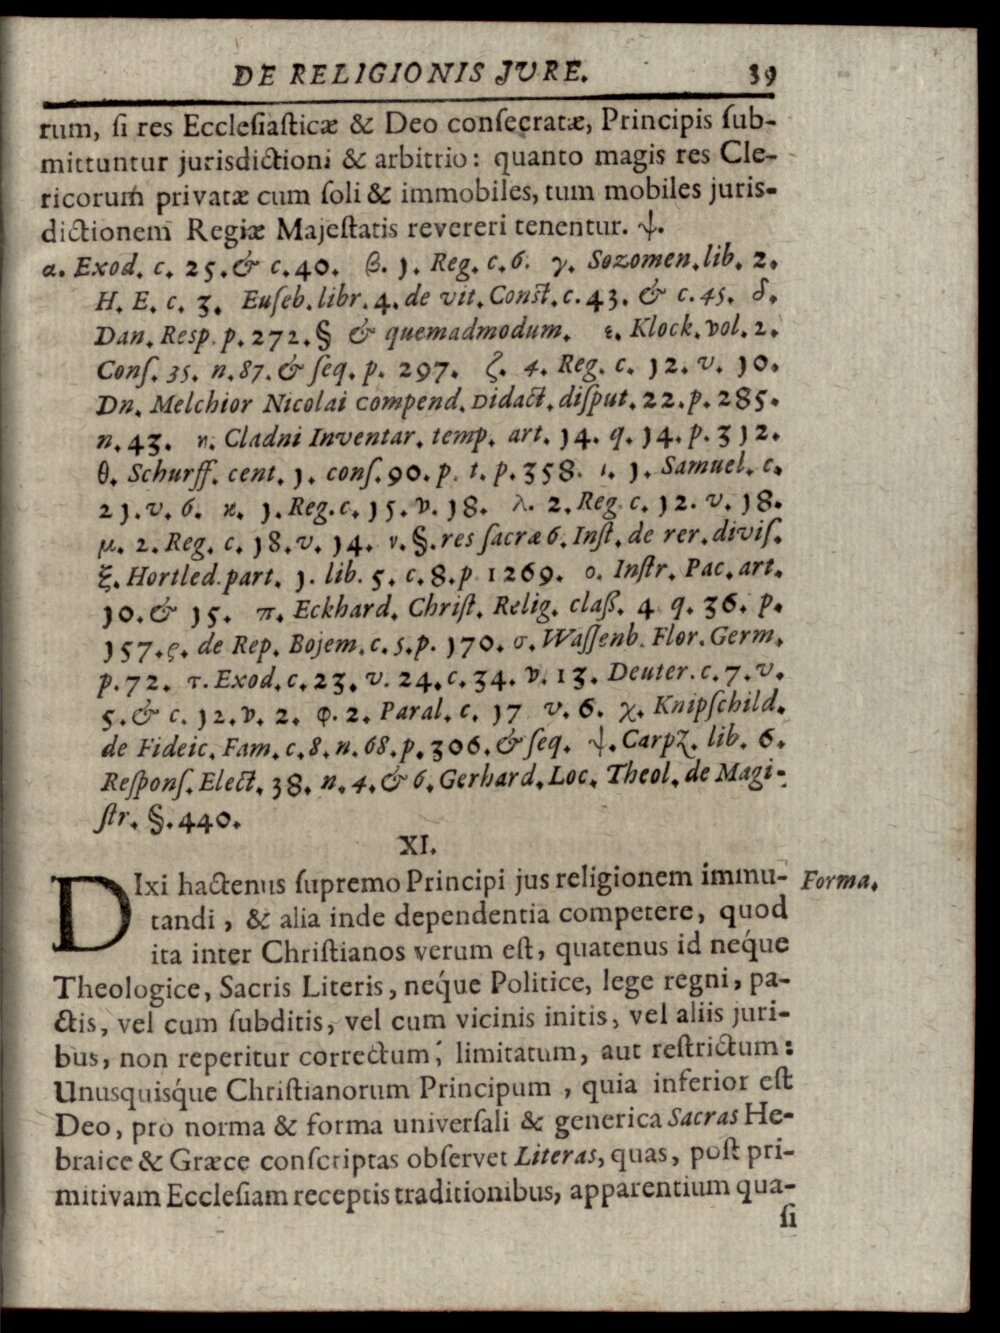 DE RELIGIONIS JVRE. 39
rum, ſi res Eccleſiaſticæ & Deo conſecratæ, Principis ſub-
mittuntur jurisdictioni & arbitrio: quanto magis res Cle-
ricorum privatæ cum ſoli & immobiles, tum mobiles juris-
dictionem Regiæ Majeſtatis revereri tenentur. ψ.
α. Exod. c. 25. & c. 40. β. 1. Reg. c. 6. γ. Sozomen. lib. 2.
H. E. c. 3. Euſeb. libr. 4. de vit. Conſt. c. 43. & c. 45. δ.
Dan. Resp. p. 272. § & quemadmodum. ε. Klock. vol. 2.
Conſ. 35. n. 87. & ſeq. p. 297. ζ. 4. Reg. c. 12. v. 10.
Dn. Melchior Nicolai compend. Didact. diſput. 22. p. 285.
n. 43. η. Cladni Inventar. temp. art. 14. q. 14. p. 312.
θ. Schurff. cent. 1. conſ. 90. p. t. p. 358. ι. 1. Samuel. c.
21. v. 6. κ. 1. Reg. c. 15. v. 18. λ. 2. Reg. c. 12. v. 18.
μ. 2. Reg. c. 18. v. 14. ν. §. res ſacræ 6. Inſt. de rer. diviſ.
ξ. Hortled. part. 1. lib. 5. c. 8. p 1269. ο. Inſtr. Pac. art.
10. & 15. π. Eckhard. Chriſt. Relig. claſſ. 4 q. 36. p.
157. ς. de Rep. Bojem. c. 5. p. 170. σ. Waſſenb. Flor. Germ.
p. 72. τ. Exod. c. 23. v. 24. c. 34. v. 13. Deuter. c. 7. v.
5. & c. 12. v. 2. φ. 2. Paral. c. 17 v. 6. χ. Knipſchild.
de Fideic. Fam. c. 8. n. 68. p. 306. & ſeq. ψ. Carpz. lib. 6.
Reſponſ. Elect. 38. n. 4. & 6. Gerhard. Loc. Theol. de Magi-
ſtr. §. 440.
XI.
DIxi hactenus ſupremo Principi jus religionem immu- Forma.
tandi, & alia inde dependentia competere, quod
ita inter Chriſtianos verum eſt, quatenus id neque
Theologice, Sacris Literis, neque Politice, lege regni, pa-
ctis, vel cum ſubditis, vel cum vicinis initis, vel aliis juri-
bus, non reperitur correctum, limitatum, aut reſtrictum:
Unusquisque Chriſtianorum Principum, quia inferior eſt
Deo, pro norma & forma univerſali & generica Sacras He-
braice & Græce conſcriptas obſervet Literas, quas, poſt pri-
mitivam Eccleſiam receptis traditionibus, apparentium qua-
ſi